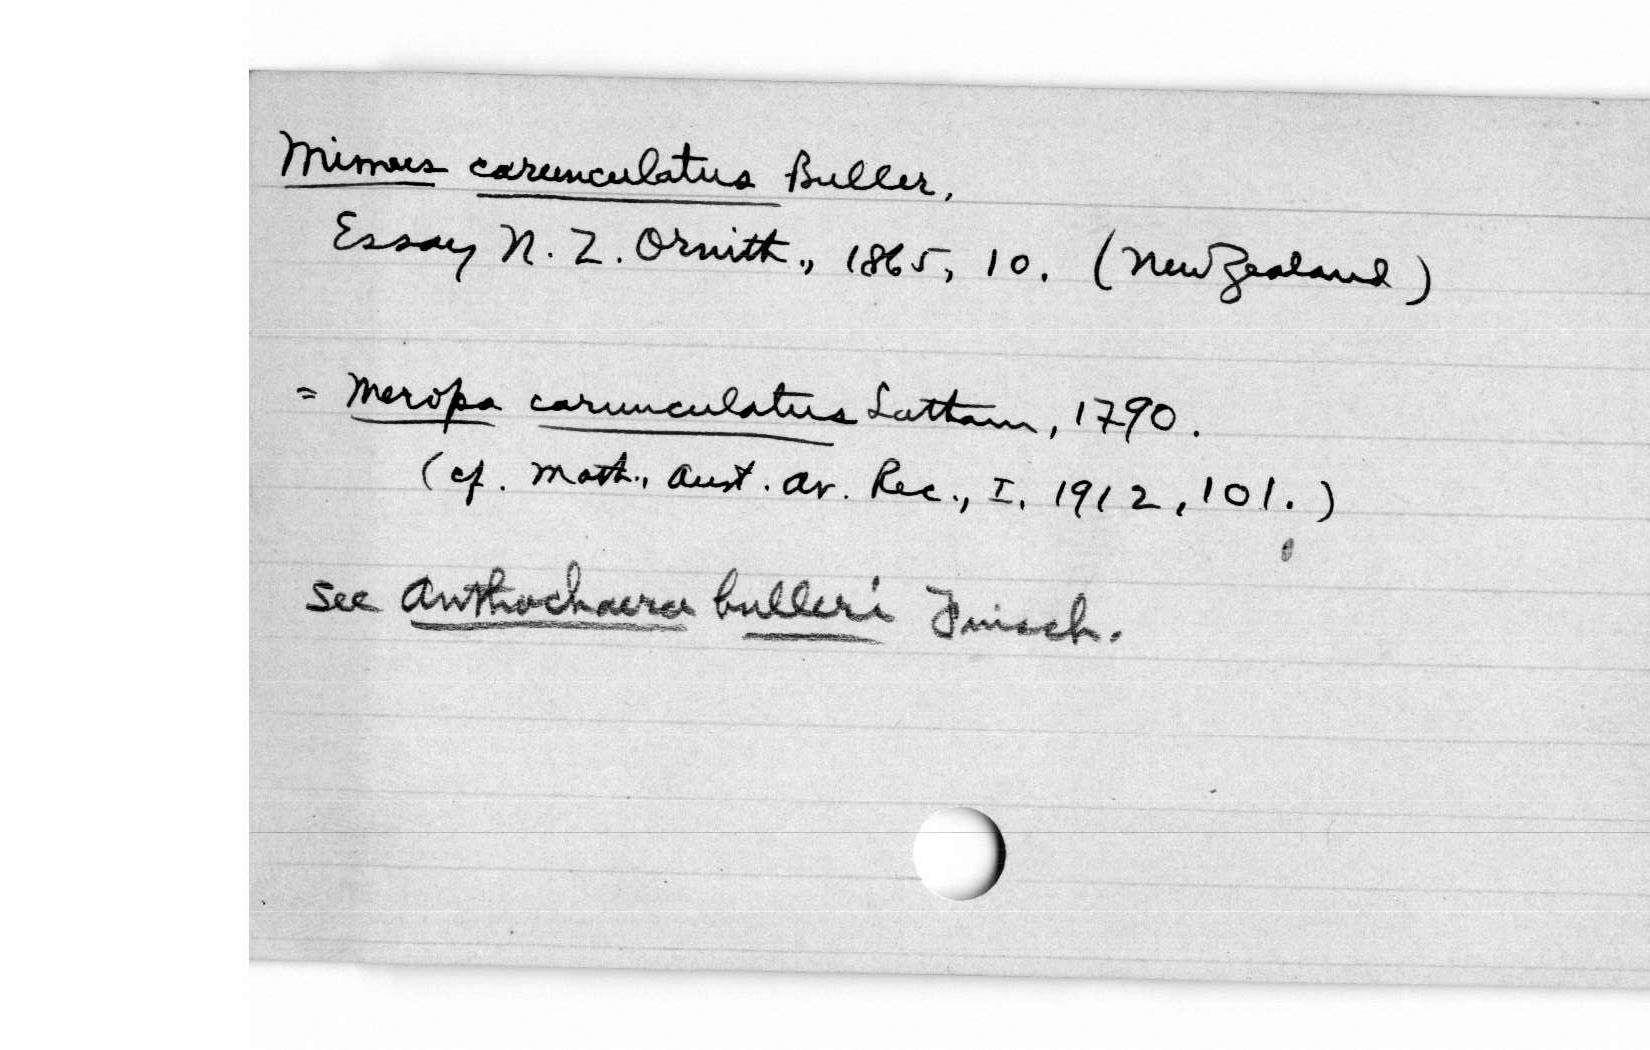 Mimus carunculatus Buller,
Essay N. Z. Ornith., 1865, 10. (New Zealand)
= Merops carunculatus Latham, 1790.
(cf. Math., Aust. Av. Rec., I, 1912, 101.)
see Anthochaera bulleri Finsch.